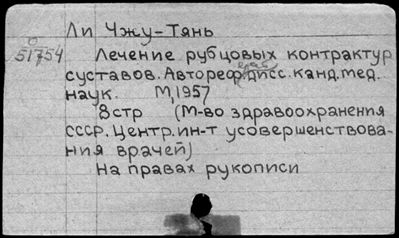 Ли Чжу-Тянь
0
51754
Лечение рубцовых контрактур
суставов. Автореф. дисс. канд. мед.
наук. М, 1957
8 стр (М-во здравоохранения
СССР. Центр. ин-т усовершенствова-
ния врачей)
На правах рукописи